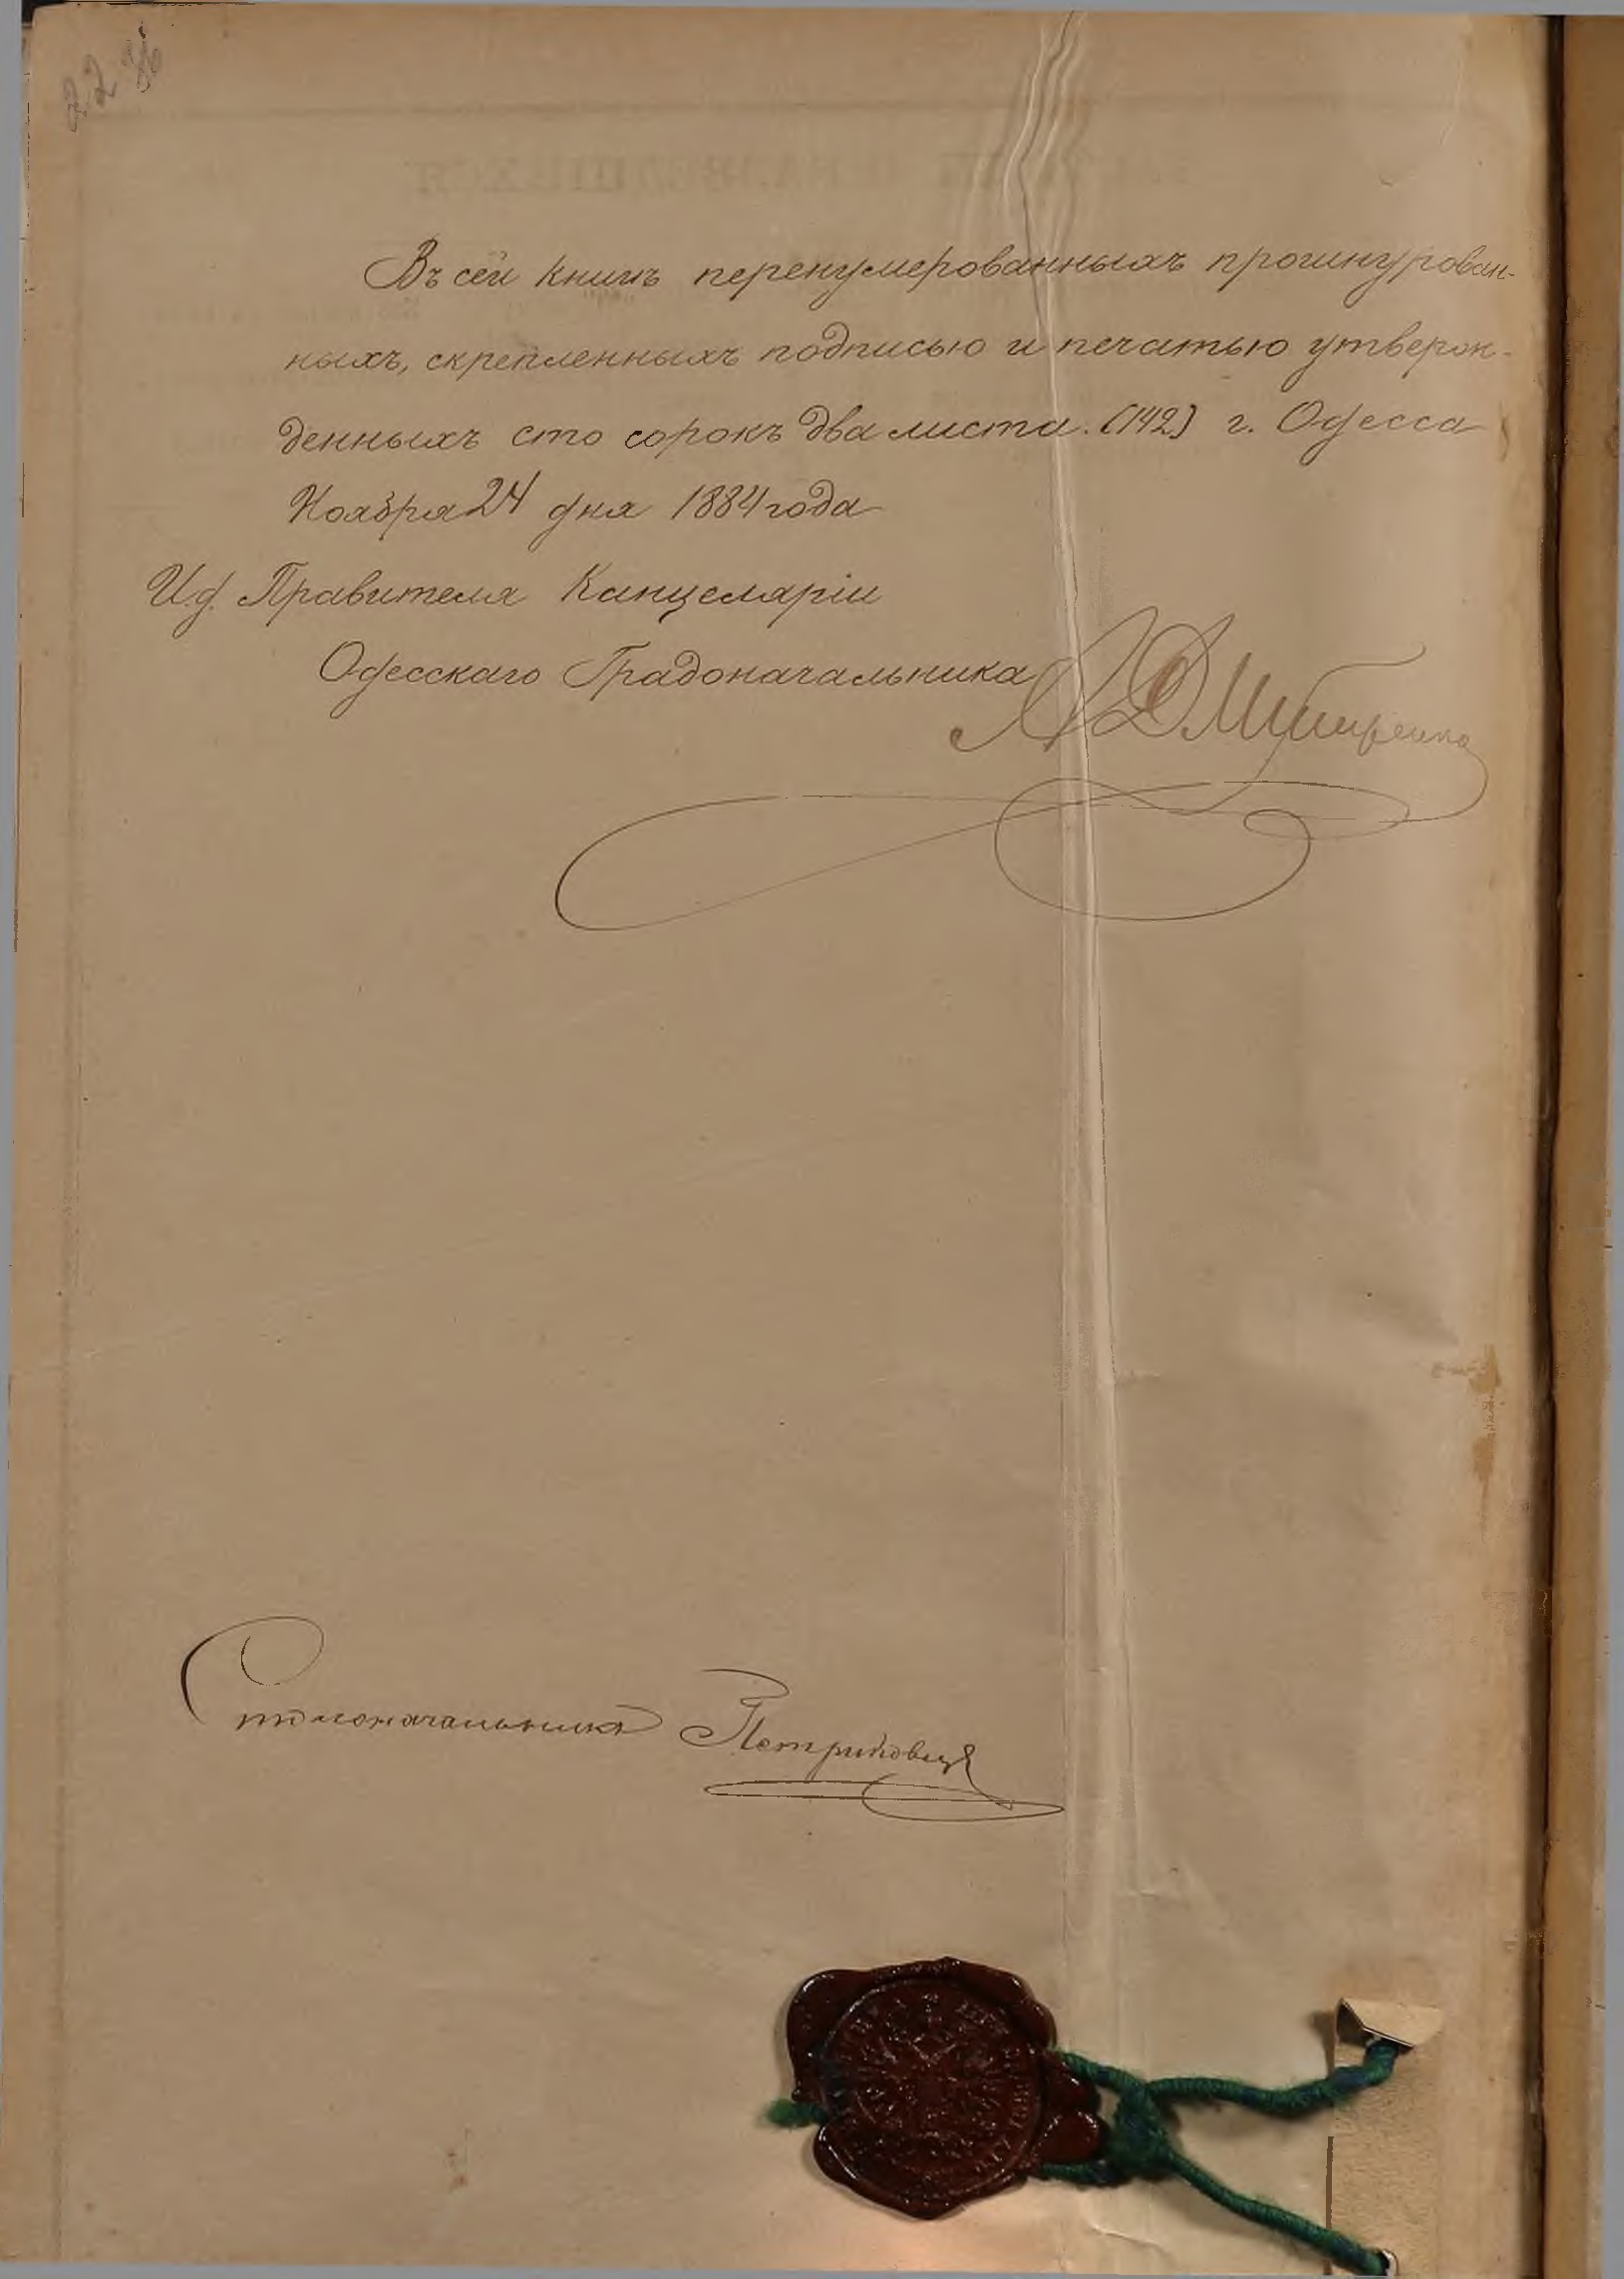 Въ сей книгѣ перенумерованныхъ прошнурован-
ныхъ, скрепленныхъ подписью и печатью утверж-
денныхъ сто сорокъ два листа. (142) г. Одесса
Ноября 24 дня 1884 года
И.д. Правителя Канцеляріи
Одесскаго Градоначальника
Столоначальникъ